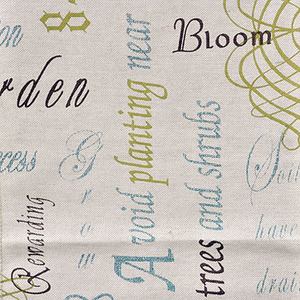 8
Bloom
rden
Avoid planting near
trees and shrubs
Grow
Rewarding
Soil
have